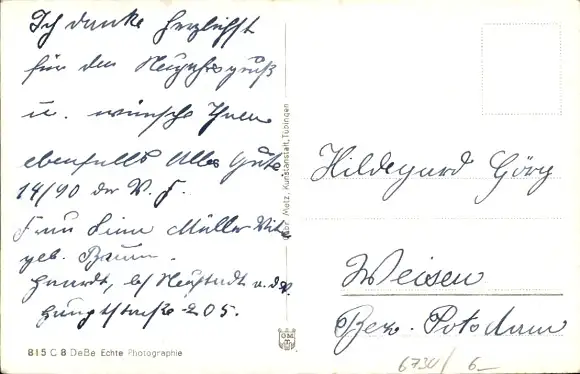 Ich danke herzlichst
für den Neujahrsgruß
u. wünsche Ihnen
ebenfalls Alles Gute
14/90 der V. F.
Frau Müller Wit
geb. Baum.
Haardt, b/ Neustadt a. d.
Hauptstraße 205.
815 C 8 DeBe Echte Photographie
Gebr. Metz, Kunstanstalt, Tübingen
Hildegard Görg
Weisen
Bez. Potsdam
6730/ 6-